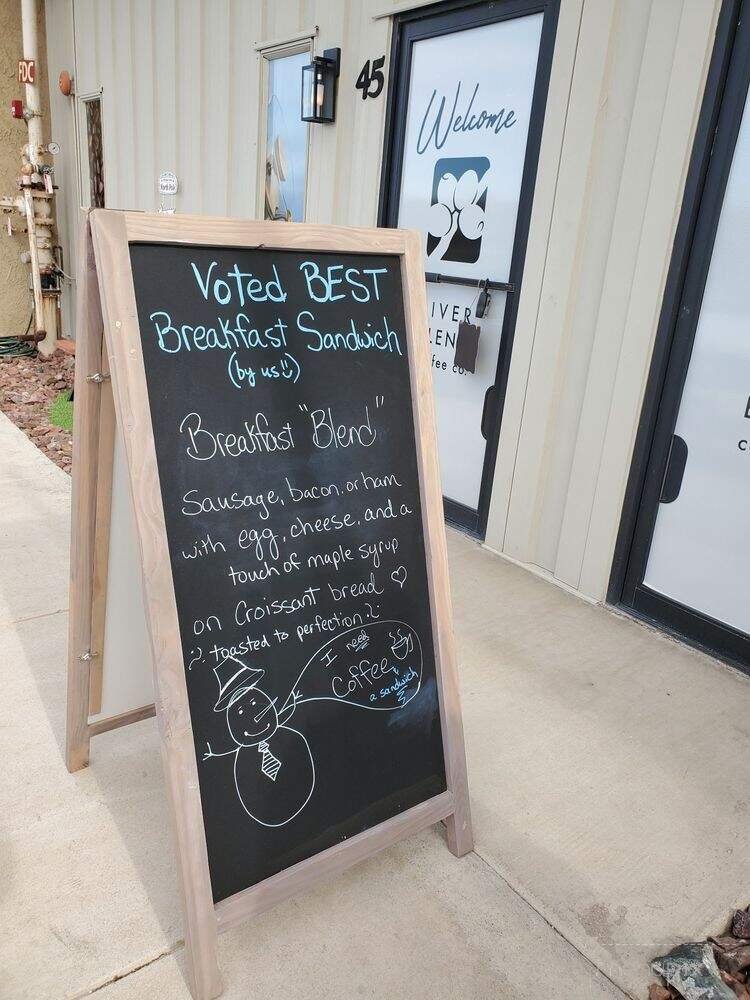 FDC
45
Welcome
North Pole
IVER
LEN
fee co.
Voted BEST
Breakfast Sandwich
(by us!)
Breakfast "Blend"
Sausage, bacon, or ham
with egg, cheese, and a
touch of maple syrup
on Croissant bread ♡
toasted to perfection
I need
Coffee
& a sandwich